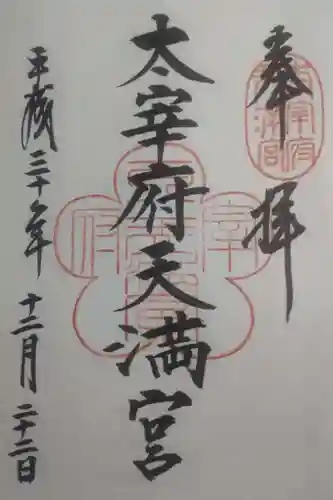 奉拝
太宰府天満宮
平成三十年十二月二十二日